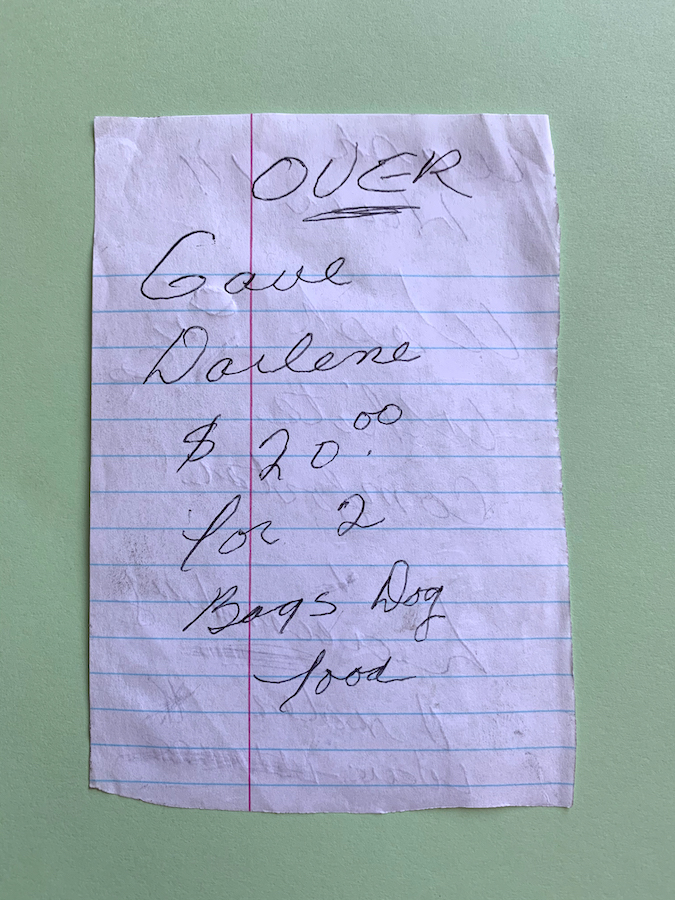 OVER
Gave
Darlene
$ 20.00
for 2
Bags Dog
food